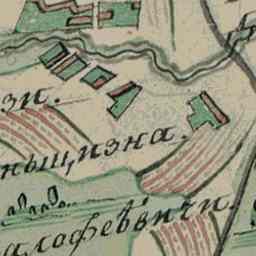 зи.
ньщизна.
алофеѣвичи.